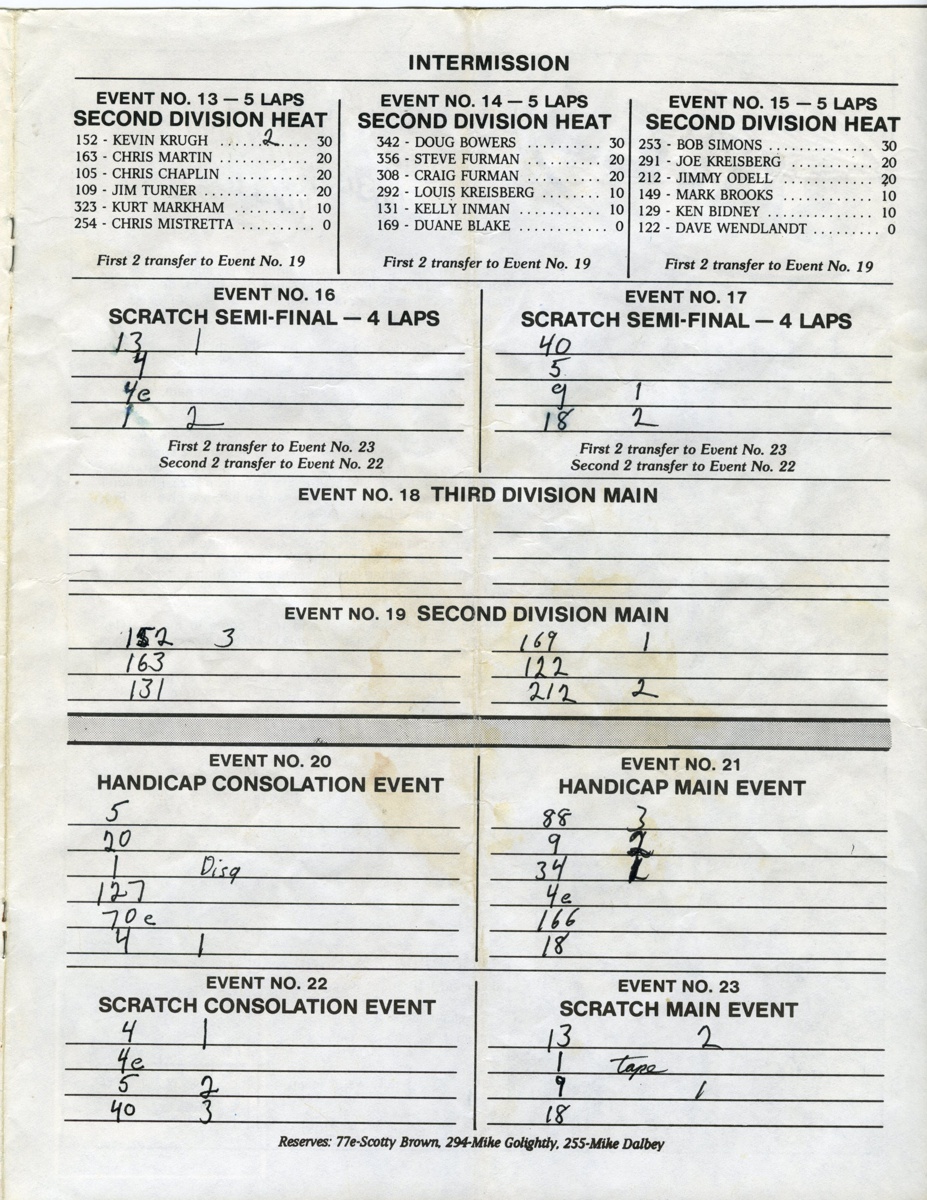 INTERMISSION
EVENT NO. 13 — 5 LAPS
SECOND DIVISION HEAT
152 - KEVIN KRUGH ...... 2 .... 30
163 - CHRIS MARTIN .............. 20
105 - CHRIS CHAPLIN ............ 20
109 - JIM TURNER ................ 20
323 - KURT MARKHAM .......... 10
254 - CHRIS MISTRETTA .......... 0
First 2 transfer to Event No. 19
EVENT NO. 14 — 5 LAPS
SECOND DIVISION HEAT
342 - DOUG BOWERS ........... 30
356 - STEVE FURMAN .......... 20
308 - CRAIG FURMAN .......... 20
292 - LOUIS KREISBERG ........ 10
131 - KELLY INMAN ............ 10
169 - DUANE BLAKE ............ 0
First 2 transfer to Event No. 19
EVENT NO. 15 — 5 LAPS
SECOND DIVISION HEAT
253 - BOB SIMONS .............. 30
291 - JOE KREISBERG .......... 20
212 - JIMMY ODELL ............ 20
149 - MARK BROOKS ........... 10
129 - KEN BIDNEY .............. 10
122 - DAVE WENDLANDT ........ 0
First 2 transfer to Event No. 19
EVENT NO. 16
SCRATCH SEMI-FINAL — 4 LAPS
13 1
4
4e
1 2
First 2 transfer to Event No. 23
Second 2 transfer to Event No. 22
EVENT NO. 17
SCRATCH SEMI-FINAL — 4 LAPS
40
5
9 1
18 2
First 2 transfer to Event No. 23
Second 2 transfer to Event No. 22
EVENT NO. 18 THIRD DIVISION MAIN
EVENT NO. 19 SECOND DIVISION MAIN
152 3
163
131
169 1
122
212 2
EVENT NO. 20
HANDICAP CONSOLATION EVENT
5
20
1 Disq
127
70e
4 1
EVENT NO. 21
HANDICAP MAIN EVENT
88 3
9 2
34 1
4e
166
18
EVENT NO. 22
SCRATCH CONSOLATION EVENT
4 1
4e
5 2
40 3
EVENT NO. 23
SCRATCH MAIN EVENT
13 2
1 tape
9 1
18
Reserves: 77e-Scotty Brown, 294-Mike Golightly, 255-Mike Dalbey